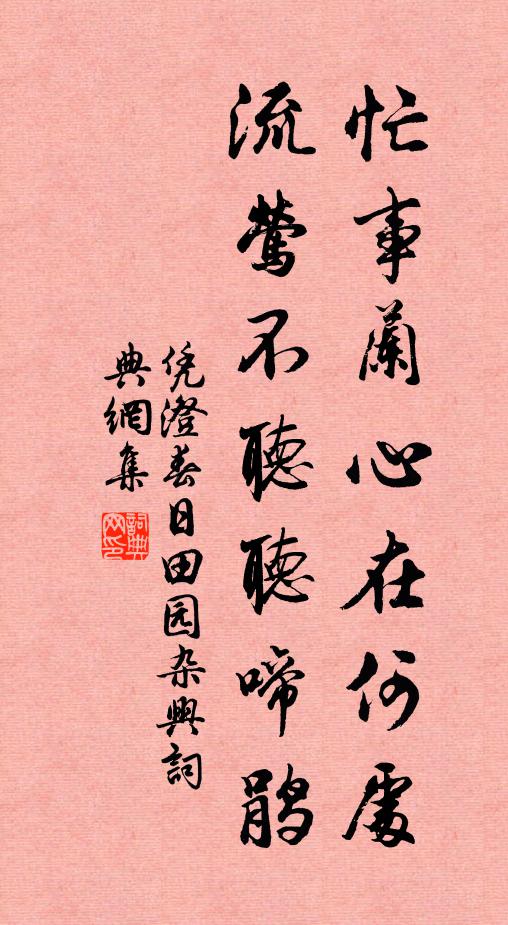 忙事蘭心在何處
流鶯不聽聽啼鵑
凭澄春日田园杂興詞
典網集
詞典網印